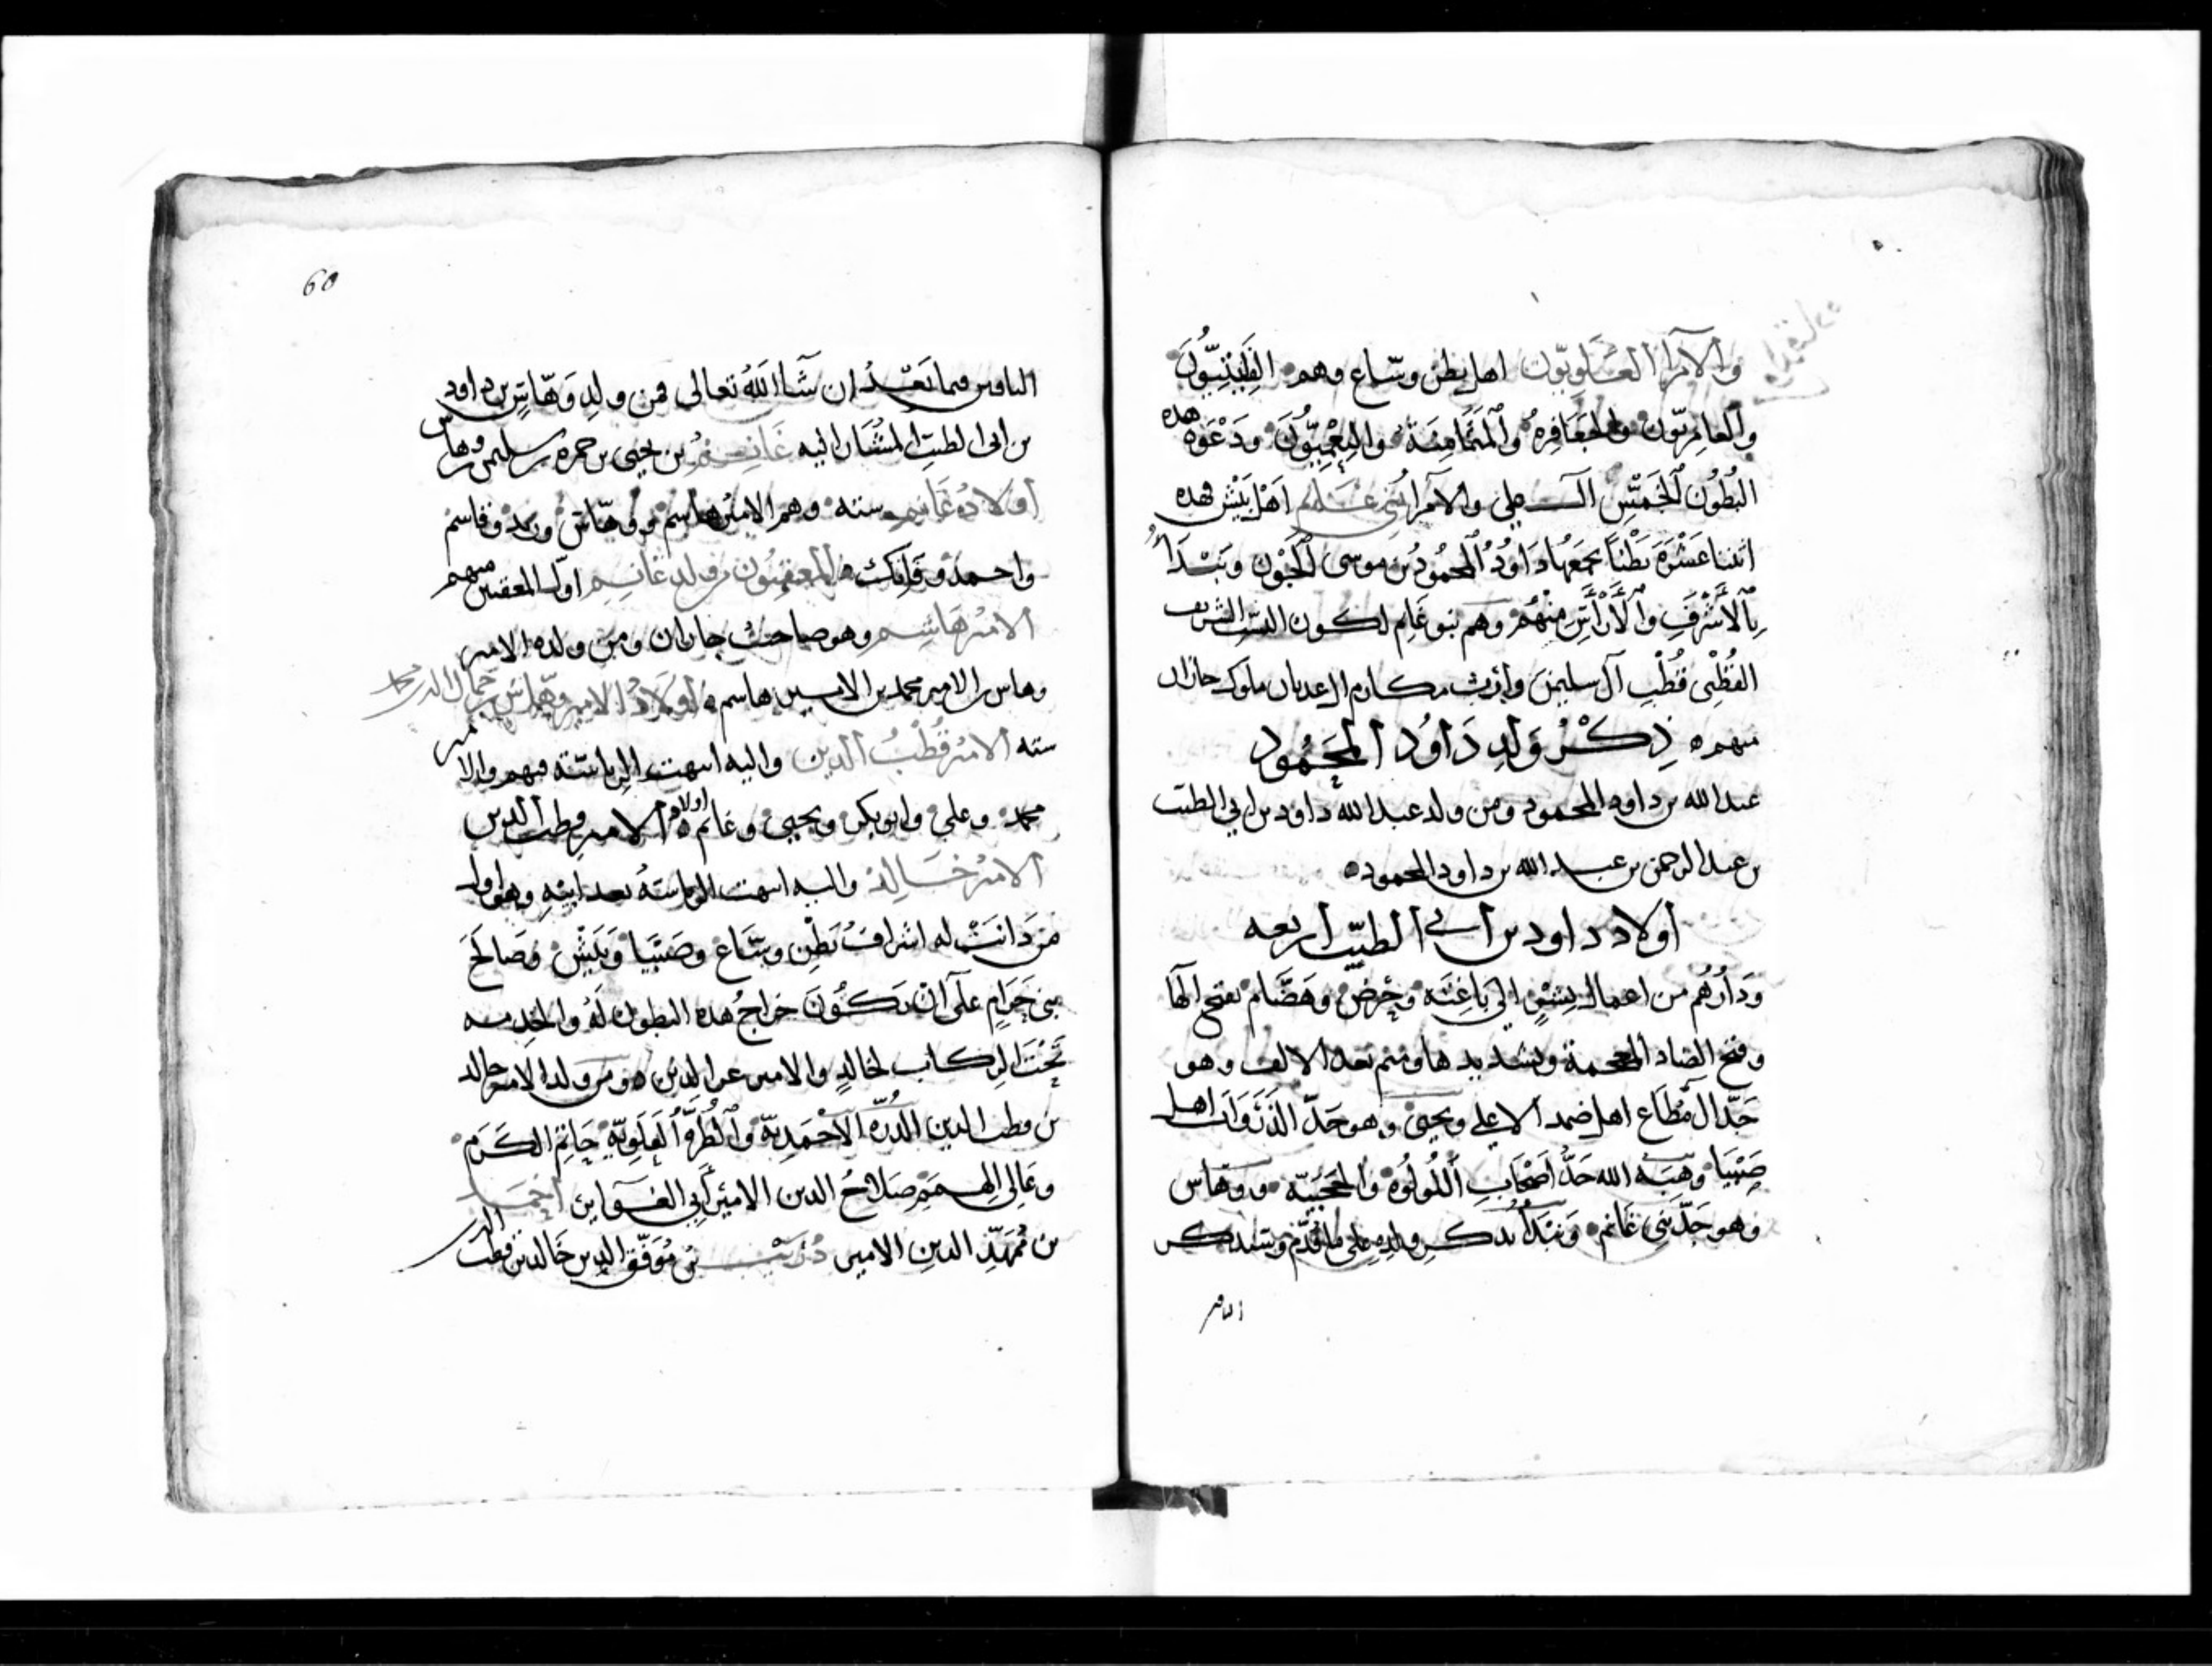 والامرا العلويّون اهل بطن وسّاع وهم القَلَيْذِيُّونَ
والعامريّون والجعافرة والمَثَامِنَة والنِعْمِيُّونَ ودَعْوَة هده
البُطُون الخمسِ آل علي والامرا بني اهل بَيْش فهده
اثنتا عَشْرَةَ بَطْنًا يجمعها دَاوُدُ المحمودُ بن موسى الجون ونبدأ
بالاشْرَفِ والارْأسِ منهم وهم بنو غانم لكون النسب الشريف
القُطْبِي قُطْبِ آل سليمن وارث مكارم العدنان ملوك جازان
منهم ذِكْرُ وَلَدِ دَاوُد المَحْمُود
عبدالله بن داود المحمود ومن ولد عبدالله داود بن ابي الطيب
بن عبدالرحمن بن عبدالله بن داود المحمود
اولاد داود بن ابي الطيّب اربعه
ودَارُهُم من اعمال الى باغِتَه وحَرَض وهَضّام بفتح الها
وفتح الضاد المعجمة وتشديدها وميم بعد الالف وهو
جَدّ آل مُطَاع اهل ضمد الاعلى ويحيى وهو جَدّ الذَرَوَات اهل
صَبْيَا وهبَه الله جَدّ اصْحَابِ اللُولُوة والحجبيّه ووهّاس
وهو جَدّ بني غَانم ونبدأ بذكر ولده على ما قدّم وسنذكر
الباقين
60
الباقين فيما بَعْدُ ان شَآ اللهُ تعالى فمن ولدِ وَهّاسِ بن داود
بن ابي الطيّب المُشَار اليه غَانِمُ بن يحيى بن حمزه بن سليمن بن وهاس
اولادُ غَانِم سته وهم الامير هاسم ووهّاس و وقاسم
واحمد و من ولد غانم اول منهم
الامير هَاشِم وهو صاحب جازان ومن ولده الامير
وهاس بن الامير محمد بن الامير هاسم اولادُ الامير وهّاس بن جمال الدين محمد
سته الاميرُ قُطْبُ الدين واليه انتهت الرياسَة فيهم والامير
محمد وعلي وابوبكر ويحيى وغانم اولاد الامير قطب الدين
الاميرُ خَالِد واليه انتهت الرياسَةُ بعد ابيه وهو اول
من دَانَتْ له اشرافُ بَطْن وسّاع وصَبْيَا وبَيْش وصَالَحَ
بني حَرَامٍ على أنْ يكُونَ خراجُ هده البطون لَهُ والخدمه
تَحْتَ الركاب لخالدٍ والامير عزالدين ومن ولد الامير خالد
بن قطب الدين الدُرّه الاحْمَدِيّة والطُرّة العَلَوِيّة حَاتِمُ الكَرَمِ
وعَالِي الهِمَمِ صَلاحُ الدين الاميْرُ أبي الغَوَاير احمد
بن مُمَهّدِ الدين الامير دُرَيْب بن مُوَفّق الدين خَالد بن قطب الدين